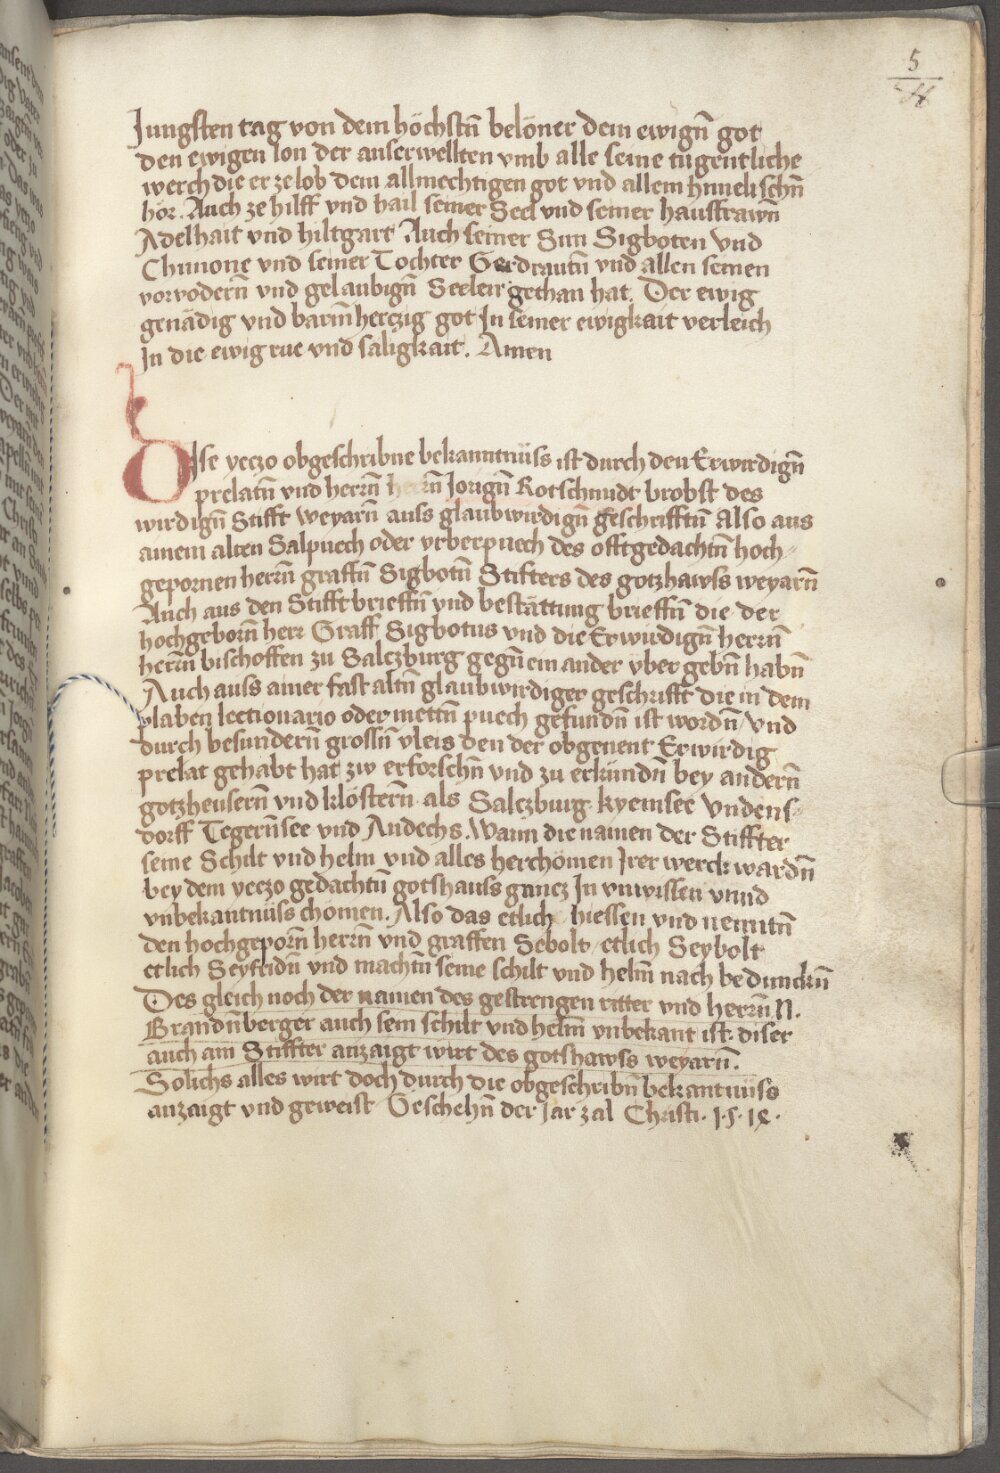 5
Jungsten tag von dem höchstn̄ belöner dem ewign̄ got
den ewigen lon der auserwellten vmb alle seine tugentliche
werch die er ze lob dem allmechtigen got vnd allem himelischn̄
hör. Auch ze hilff vnd hail seiner Seel vnd seiner hausfrawn̄
Adelhait vnd hiltgart Auch seiner Sun Sigboten vnd
Chunone vnd seiner Tochter Gerdrautn̄ vnd allen seinen
vorvodern̄ vnd gelaubign̄ Seelen gethan hat. Der ewig
genädig vnd barm̄herczig got In seiner ewigkait verleich
In die ewig rue vnd säligkait. Amen
Dise yeczo obgeschribne bekanntnüss ist durch den Erwirdign̄
prelatn̄ vnd herrn̄ herrn̄ Jorign̄ Rotschmidt brobst des
wirdign̄ Stifft weyarn̄ auss glaubwirdign̄ geschrifftn̄ Also aus
ainem alten Salpuech oder vrberpuech des offtgedachtn̄ hoch-
gepornen herrn̄ graffn̄ Sigbotn̄ Stifters des gotzhawss weyarn̄
Auch aus den Stifftbrieffn̄ vnd bestättung brieffn̄ die der
hochgeborn̄ herr Graff Sigbotus vnd die Erwirdign̄ herrn̄
herrn̄ bischoffen zu Salczburg gegn̄ ein ander vber gebn̄ habn̄
Auch auss ainer fast altn̄ glaubwirdiger geschrifft die in dem
plaben lectionario oder mettn̄ puech gefundn̄ ist wordn̄ vnd
durch besundern̄ grossn̄ vleis den der obgenent Erwirdig
prelat gehabt hat zw erforschn̄ vnd zu erkundn̄ bey andern̄
gotzheusern̄ vnd klöstern̄ als Salczburg kyemsee Vndens-
dorff Tegern̄see vnd Andechs. Wann die namen der Stiffter
seine Schilt vnd helm vnd alles herchömen Jrer werck wardn̄
bey dem yeczo gedachtn̄ gotshauss gancz In vnwissen vnnd
vnbekantnüss chömen. Also das etlich hiessen vnd nenntn̄
den hochgeporn̄ herrn̄ vnd graffen Sebolt etlich Seybolt
etlich Seyfridn̄ vnd machtn̄ seine schilt vnd helm̄ nach bedunckn̄
Des gleich noch der namen des gestrengen ritter vnd herrn̄ N.
Brandn̄berger auch sein schilt vnd helm̄ vnbekant ist. diser
auch ain Stiffter anzaigt wirt des gotshawss weyarn̄.
Solichs alles wirt doch durch die obgeschribn̄ bekantnüss
anzaigt vnd geweist Geschehn̄ der Jar zal Christi.